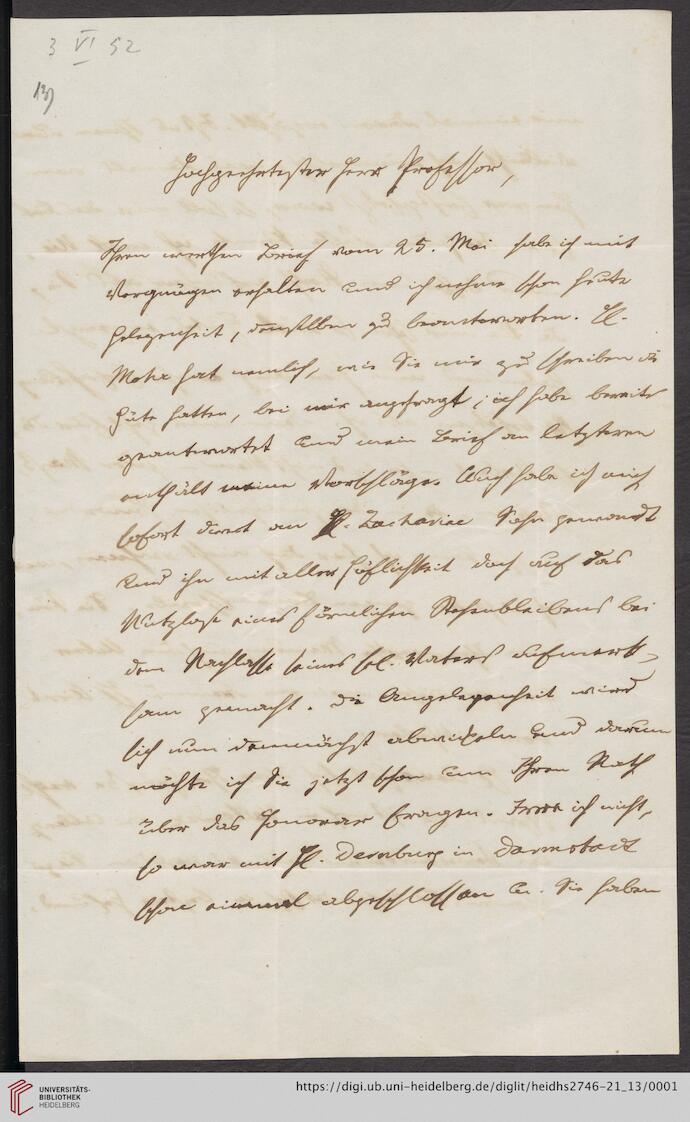 3 VI 52
13)
Hochgeehrtester Herr Professor,
Ihren werthen Brief vom 25. Mai habe ich mit
Vergnügen erhalten und ich nehme schon heute
Gelegenheit, denselben zu beantworten. H.
Mohr hat nemlich, wie Sie mir zu schreiben die
Güte hatten, bei mir angefragt; ich habe bereits
geantwortet und mein Brief an letzteren
enthält meine Vorschläge. Auch habe ich mich
sofort direct an H. Zachariae Sohn gewandt
und ihn mit aller Höflichkeit doch auf das
Nutzlose eines förmlichen Stehenbleibens bei
dem Nachlasse seines sel. Vaters aufmerk-
sam gemacht. Die Angelegenheit wird
sich nun demnächst abwickeln und darum
möchte ich Sie jetzt schon um Ihren Rath
über das Honorar fragen. Irre ich nicht,
so war mit H. Dernburg in Darmstadt
schon einmal abgeschlossen u. Sie haben
UNIVERSITÄTS-
BIBLIOTHEK
HEIDELBERG
https://digi.ub.uni-heidelberg.de/diglit/heidhs2746-21_13/0001